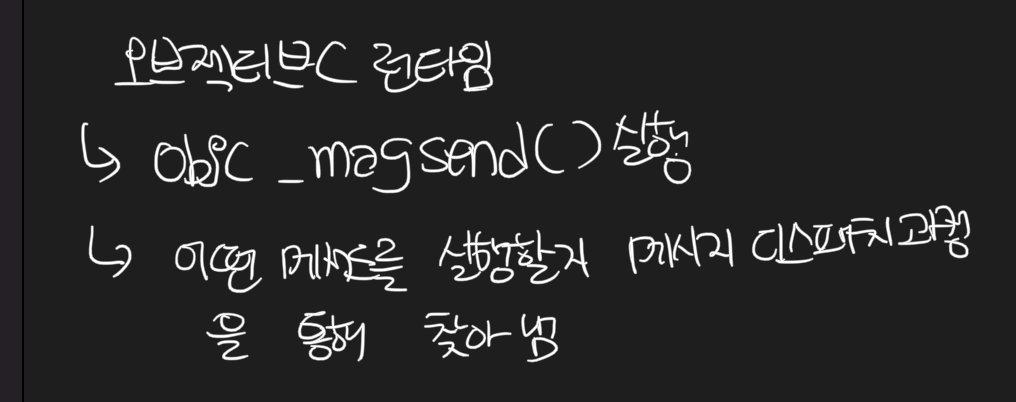 오브젝티브C 런타임
↳ objc _magsend() 실행
↳ 어떤 메서드를 실행할지 메시지 디스패치 과정
을 통해 찾아냄